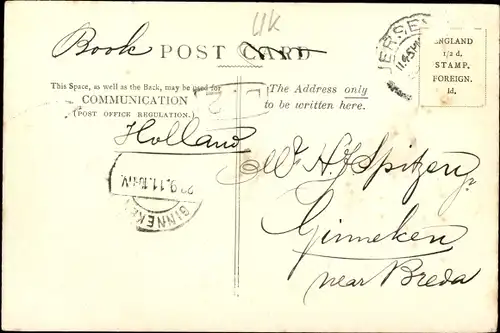 UK
Book POST CARD
JERSEY
ENGLAND
1/2 d.
STAMP.
FOREIGN.
1d.
This Space, as well as the Back, may be used for
COMMUNICATION
(POST OFFICE REGULATION.)
The Address only
to be written here.
L.
2
Holland
Mr H. J. Spitzen
Ginneken
near Breda
GINNEKEN